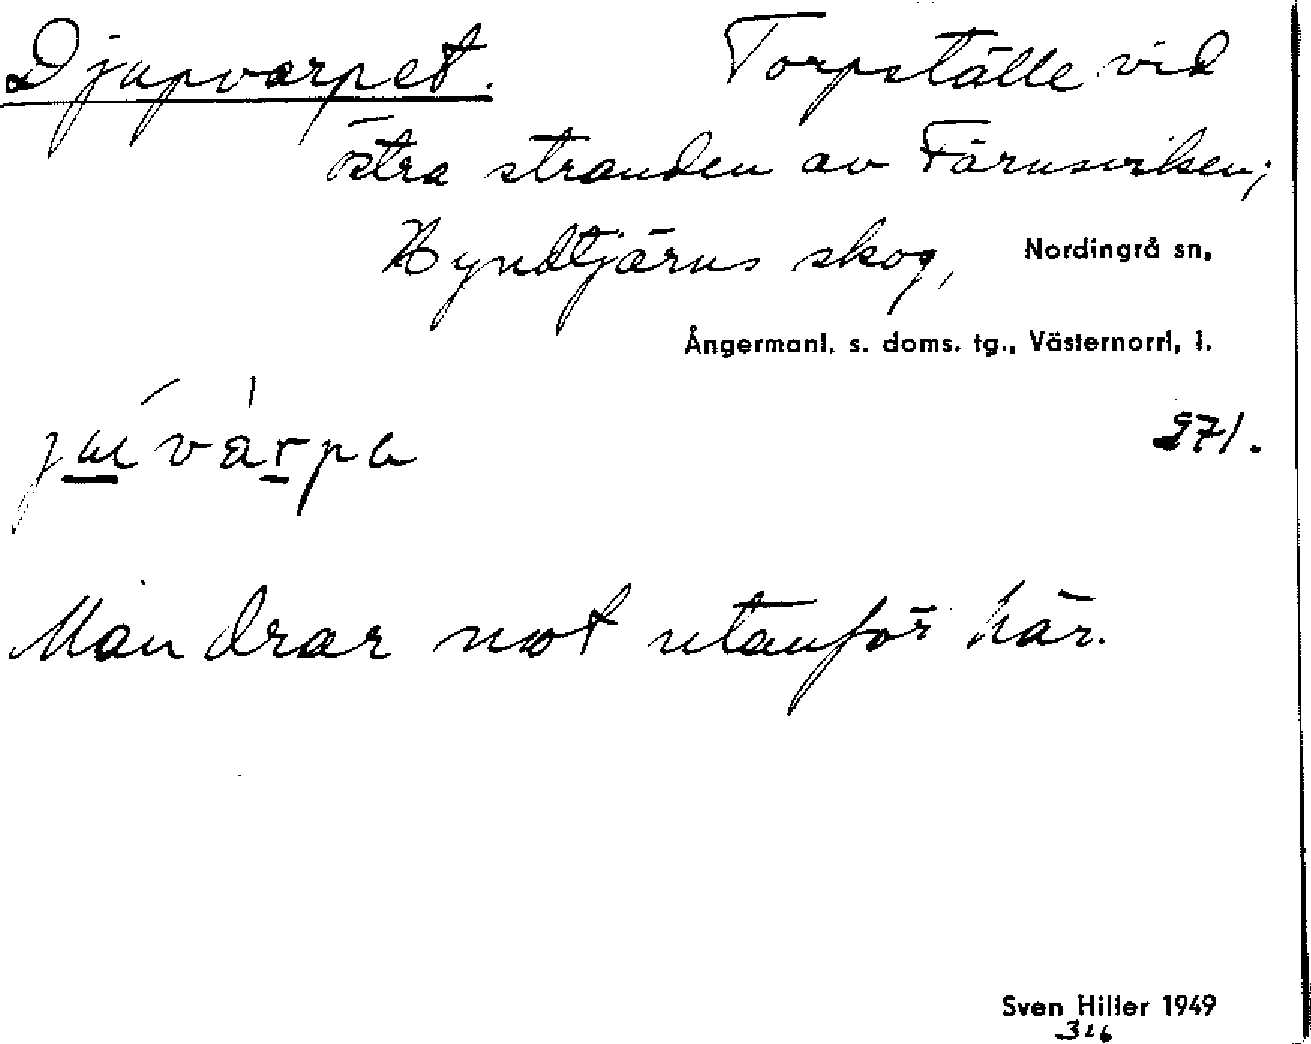 Djupvarpet. Torpställe vid
östra stranden av Färnsviken;
Hyndtjärns skog, Nordingrå sn,
Ångermanl. s. doms. tg., Västernorrl. l.
271.
Man drar not utanför här.
Sven Hiller 1949
316